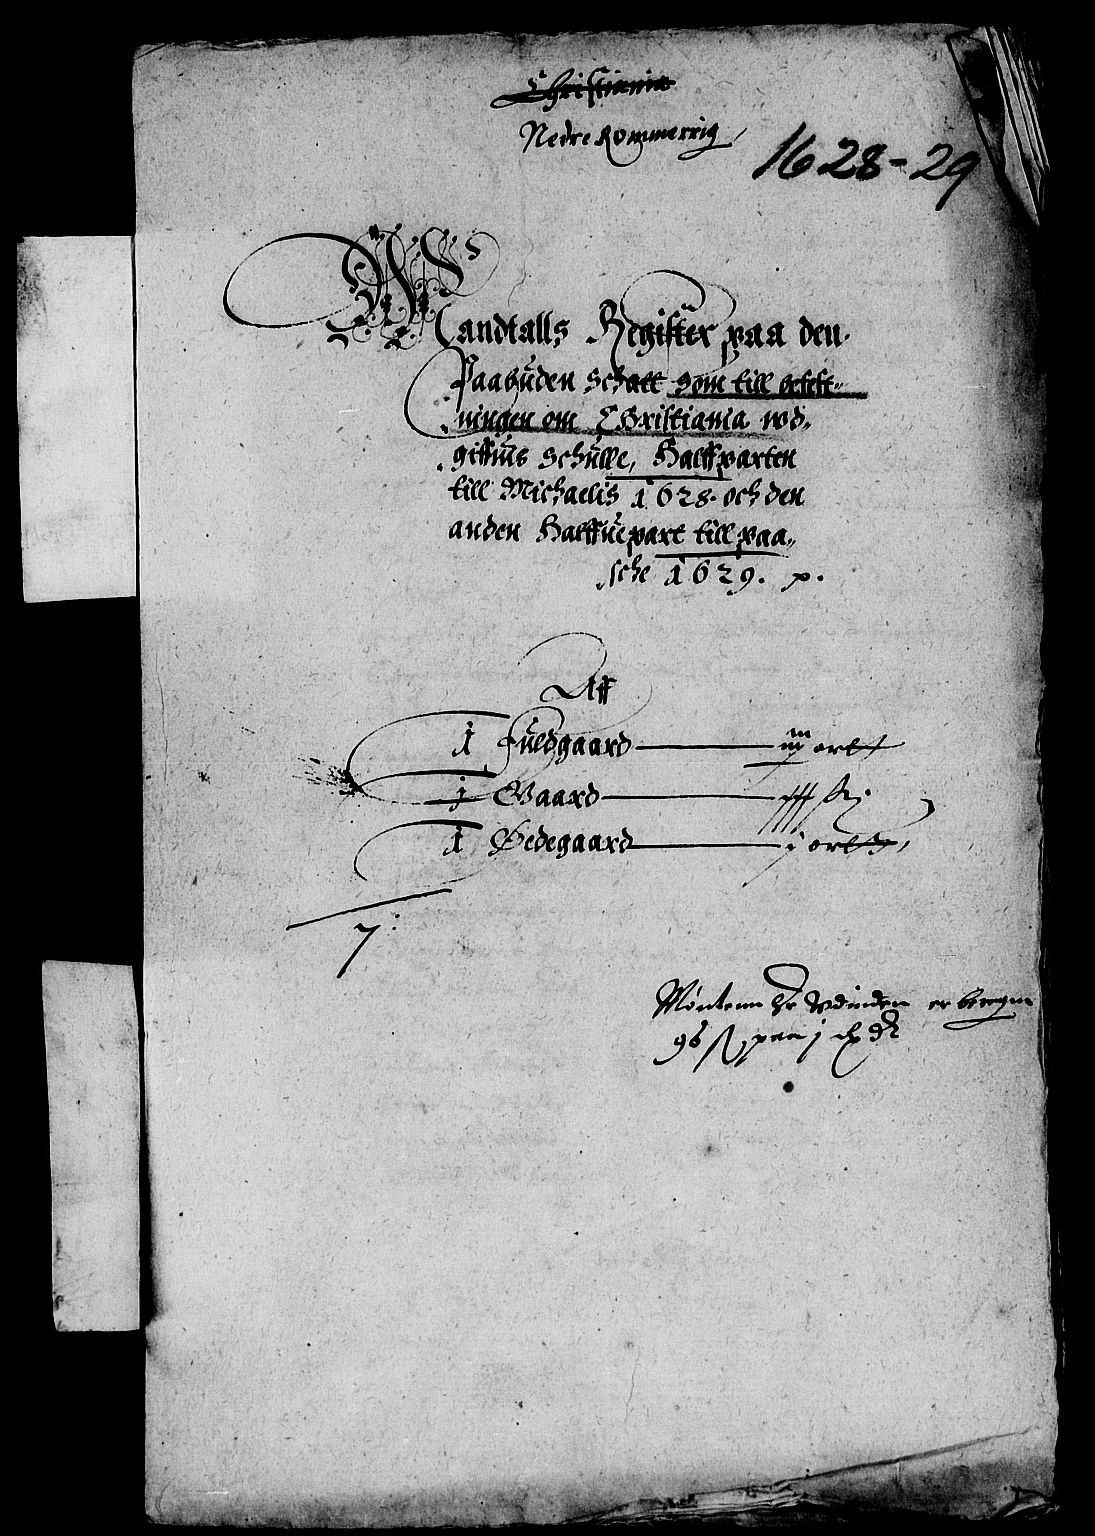 Christiania
Nedre Rommerrig
1628-29
Mandtalls Register paa den
Paabuden Schatt som till befest-
ningen om Christiania ud-
giffuis Schulle, Halffparten
till Michaelis 1628 och den
anden Halffuepart till paa-
sche 1629. p.
Aff
1 Fuldgaard iij ort
j Gaard
1 Ødegaard j ort
7
Møntenn er beregnn
96 ß paa j